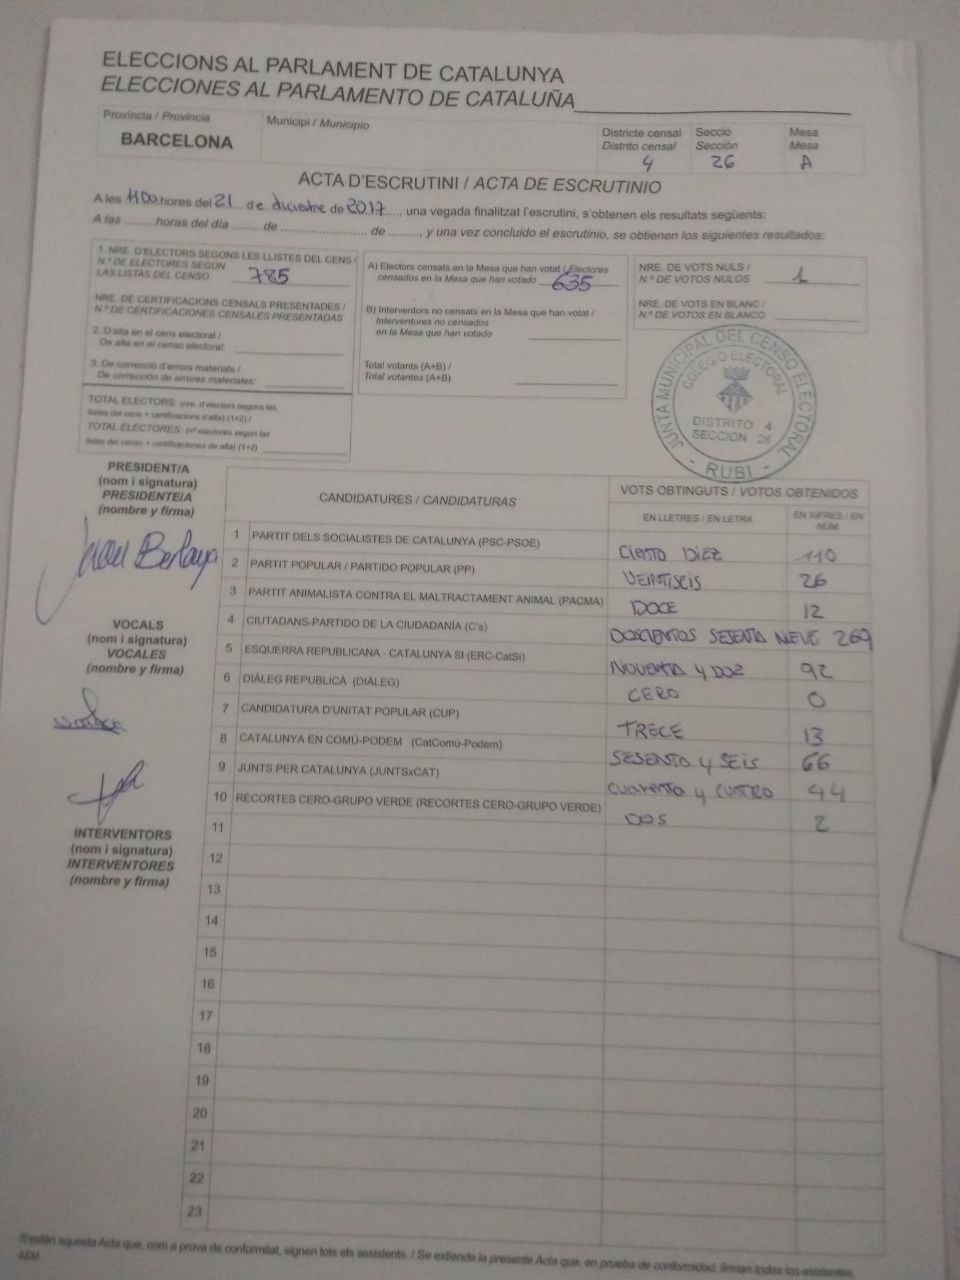 ELECCIONS AL PARLAMENT DE CATALUNYA
ELECCIONES AL PARLAMENTO DE CATALUÑA
Província / Provincia
BARCELONA
Municipi / Municipio
Districte censal
Distrito censal
4
Secció
Sección
26
Mesa
Mesa
A
ACTA D'ESCRUTINI / ACTA DE ESCRUTINIO
A les 1100 hores del 21 de diciembre de 2017, una vegada finalitzat l'escrutini, s'obtenen els resultats següents:
A las ......... horas del día ........ de ........................ de ........., y una vez concluido el escrutinio, se obtienen los siguientes resultados:
1. NRE. D'ELECTORS SEGONS LES LLISTES DEL CENS /
N.º DE ELECTORES SEGÚN
LAS LISTAS DEL CENSO 785
NRE. DE CERTIFICACIONS CENSALS PRESENTADES /
N.º DE CERTIFICACIONES CENSALES PRESENTADAS
2. D'alta en el cens electoral /
De alta en el censo electoral:
3. De correcció d'errors materials /
De corrección de errores materiales:
TOTAL ELECTORS: (nre. d'electors segons les
llistes del cens + certificacions d'alta) (1+2) /
TOTAL ELECTORES: (nº electores según las
listas del censo + certificaciones de alta) (1+2)
A) Electors censats en la Mesa que han votat / Electores
censados en la Mesa que han votado 635
B) Interventors no censats en la Mesa que han votat /
Interventores no censados
en la Mesa que han votado
Total votants (A+B) /
Total votantes (A+B)
NRE. DE VOTS NULS /
N.º DE VOTOS NULOS 1
NRE. DE VOTS EN BLANC /
N.º DE VOTOS EN BLANCO
JUNTA MUNICIPAL DEL CENSO ELECTORAL
COLEGIO ELECTORAL
DISTRITO 4
SECCION 26
- RUBI -
PRESIDENT/A
(nom i signatura)
PRESIDENTE/A
(nombre y firma)
VOCALS
(nom i signatura)
VOCALES
(nombre y firma)
INTERVENTORS
(nom i signatura)
INTERVENTORES
(nombre y firma)
CANDIDATURES / CANDIDATURAS
VOTS OBTINGUTS / VOTOS OBTENIDOS
EN LLETRES / EN LETRA
EN XIFRES / EN
NÚM
1 PARTIT DELS SOCIALISTES DE CATALUNYA (PSC-PSOE) CIENTO DIEZ 110
2 PARTIT POPULAR / PARTIDO POPULAR (PP) VEINTISEIS 26
3 PARTIT ANIMALISTA CONTRA EL MALTRACTAMENT ANIMAL (PACMA) DOCE 12
4 CIUTADANS-PARTIDO DE LA CIUDADANÍA (C's) DOSCIENTOS SESENTA NUEVE 269
5 ESQUERRA REPUBLICANA - CATALUNYA SI (ERC-CatSí) NOVENTA y DOZ 92
6 DIÀLEG REPUBLICÀ (DIÀLEG) CERO 0
7 CANDIDATURA D'UNITAT POPULAR (CUP) TRECE 13
8 CATALUNYA EN COMÚ-PODEM (CatComú-Podem) SESENTA y SEIS 66
9 JUNTS PER CATALUNYA (JUNTSxCAT) CUARENTA y CUATRO 44
10 RECORTES CERO-GRUPO VERDE (RECORTES CERO-GRUPO VERDE) DOS 2
11
12
13
14
15
16
17
18
19
20
21
22
23
S'estén aquesta Acta que, com a prova de conformitat, signen tots els assistents. / Se extiende la presente Acta que, en prueba de conformidad, firman todos los asistentes.
AEM